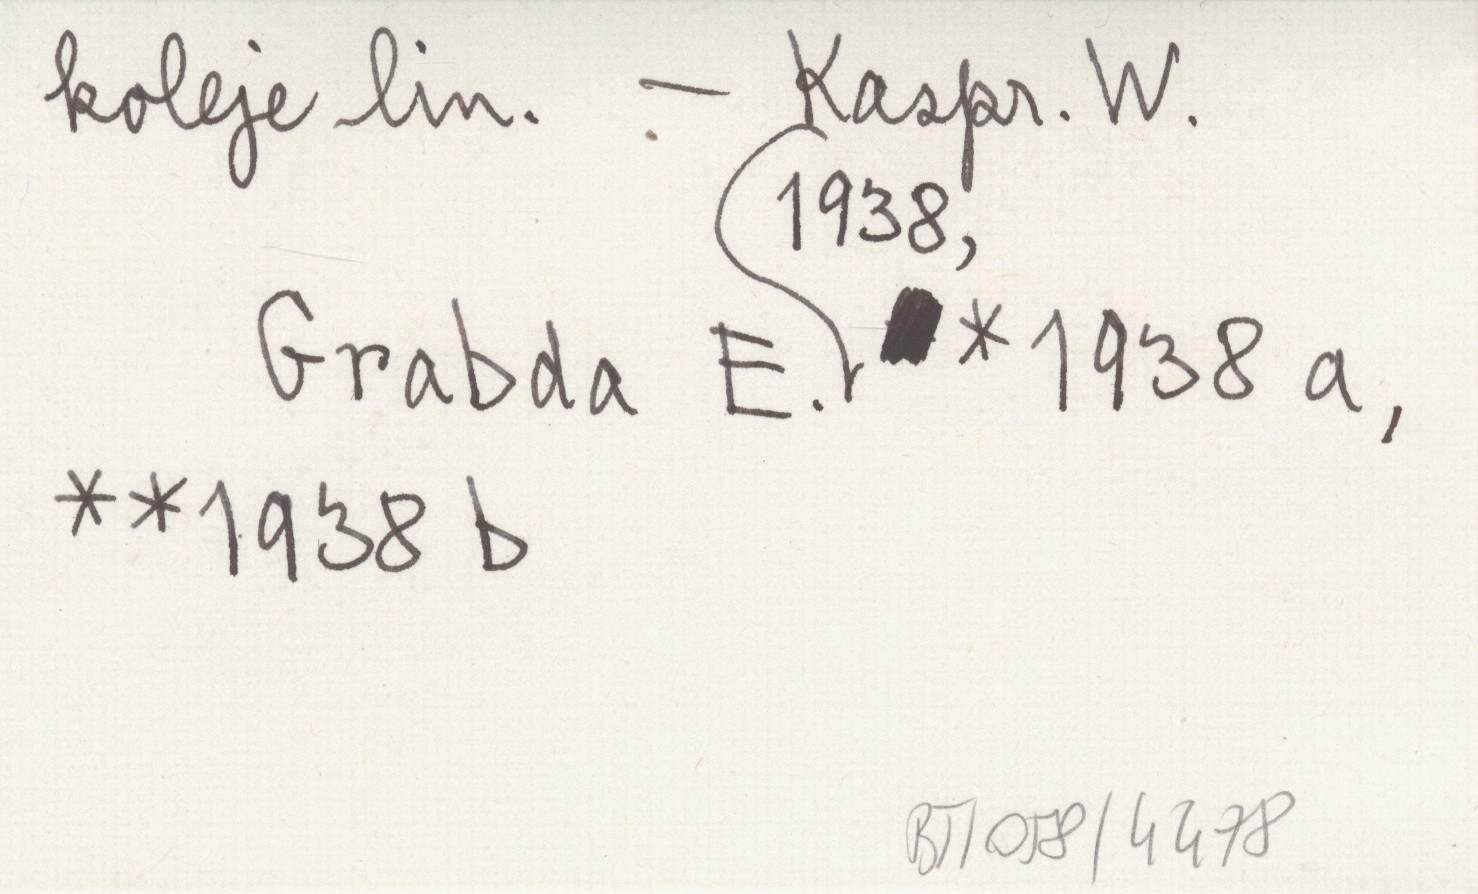 koleje lin. – Kaspr. W.
1938,
Grabda E. *1938 a,
**1938 b
BT/058/4478